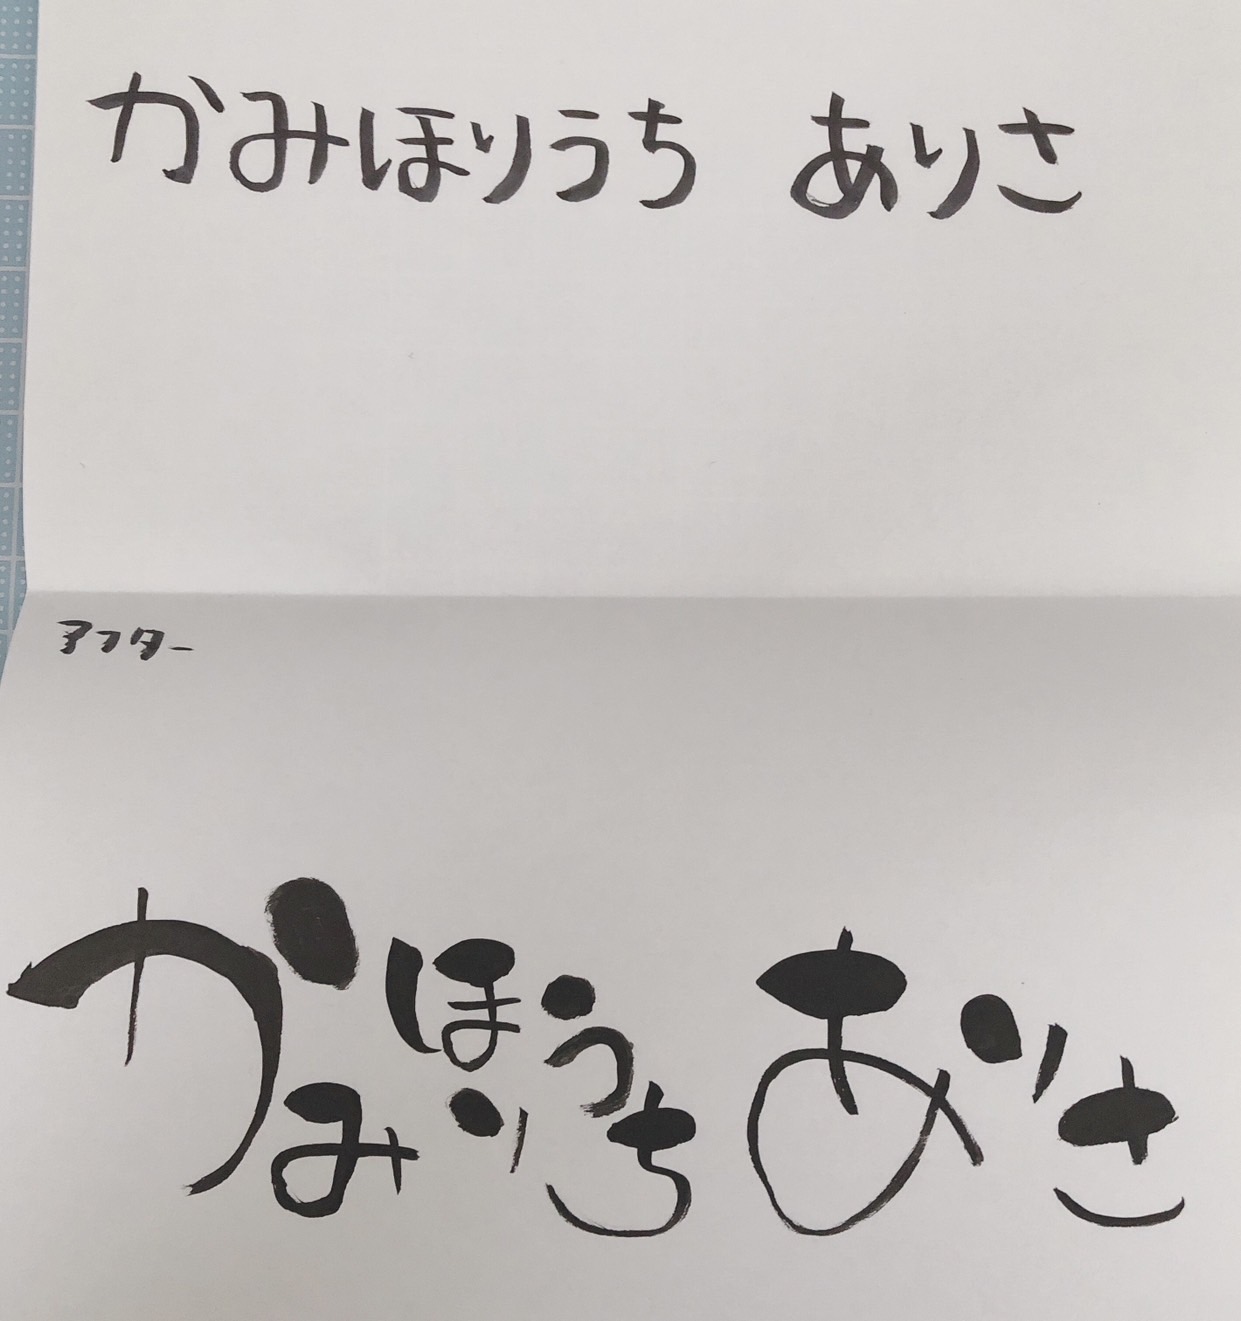 かみほりうち ありさ
アフター
かみほりうち ありさ